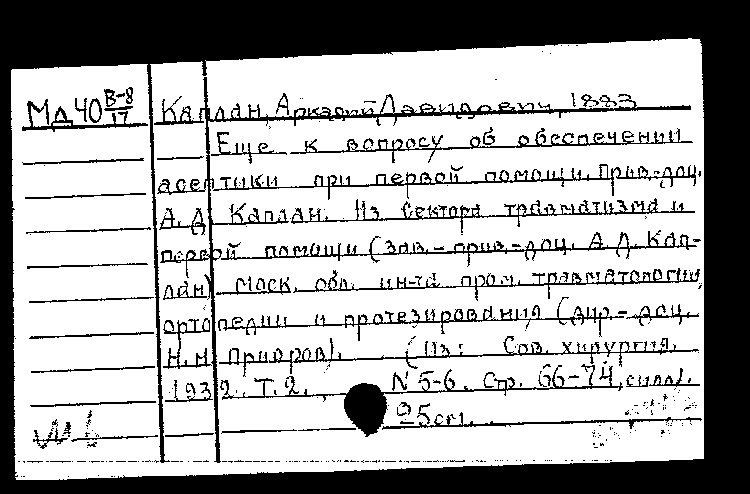 Мд 40 В-8/17 Каплан, Аркадий Давидович, 1883
Еще к вопросу об обеспечении
асептики при первой помощи. Прив.-доц.
А. Д. Каплан. Из Сектора травматизма и
первой помощи (зав. - прив.-доц. А. Д. Кап-
лан) Моск. обл. ин-та пром. травматологии,
ортопедии и протезирования (дир. - доц.
Н. Н. Приоров). (Из: Сов. хирургия.
1932. Т. 2. N 5-6. Стр. 66-74, с илл).
25 см.